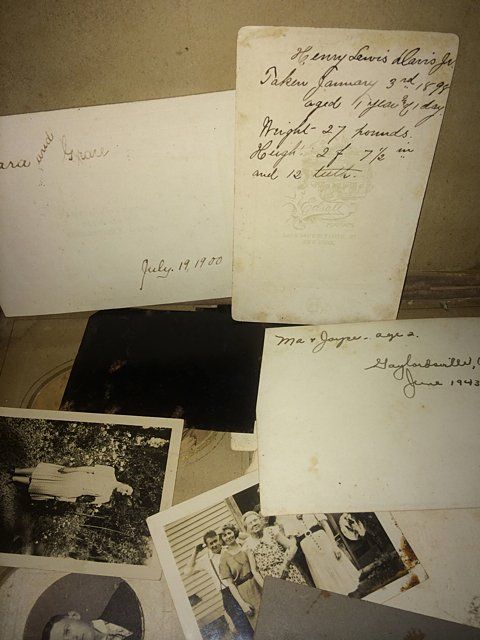 Henry Lewis Davis Jr
Taken January 3rd 189
aged 1 year & 1 day.
Weight - 27 pounds.
Heigh 2 f 7 1/2 in
and 12 teeth.
ara and Grace
July. 19, 1900
Ma & Joyce - age 2.
Gaylordsville,
June 1943